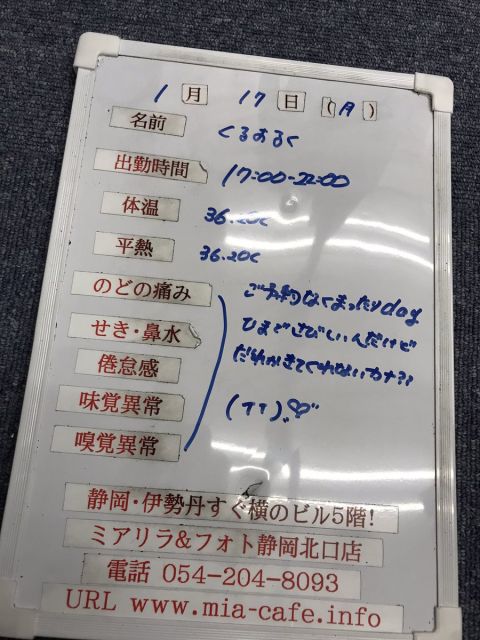 1月 17日(月)
名前 くるおるく
出勤時間 17:00-22:00
体温 36.20C
平熱 36.20C
のどの痛み
せき・鼻水
倦怠感
味覚異常
嗅覚異常
ご予約なくまったりday
ひまでさびしいんだけど
だれかきてくれないカナ??
(TT)♡
静岡・伊勢丹すぐ横のビル5階!
ミアリラ&フォト静岡北口店
電話 054-204-8093
URL www.mia-cafe.info